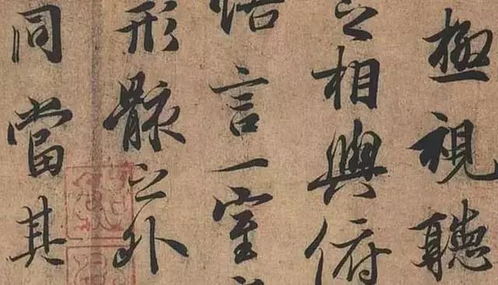 極視聽
之相與俯
悟言一室
形骸之外
同當其